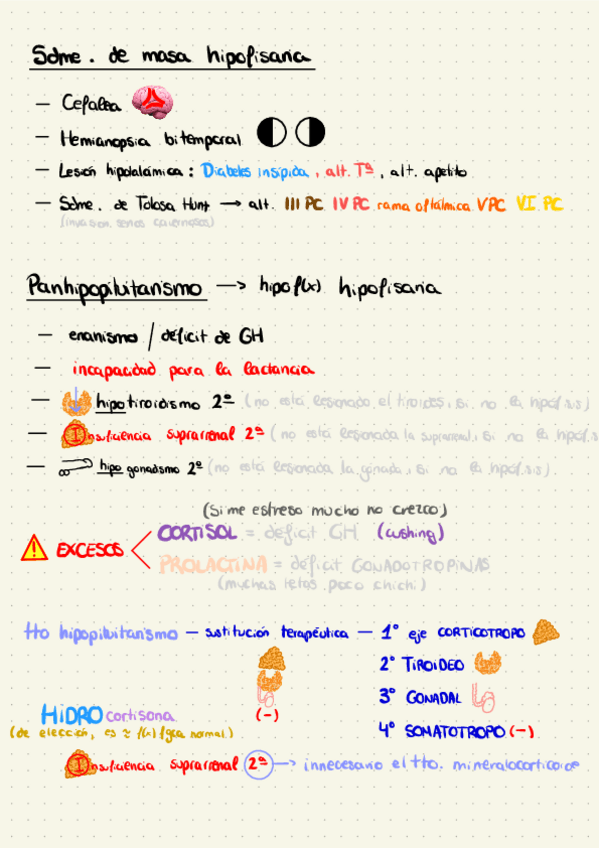 Sdme. de masa hipofisaria
— Cefalea
— Hemianopsia bitemporal
— Lesión hipotalámica: Diabetes insípida, alt. Tª, alt. apetito
— Sdme. de Tolosa Hunt → alt. III PC IV PC rama oftálmica V PC VI PC
(invasión senos cavernosos)
Panhipopituitarismo → hipof(x) hipofisaria
— enanismo / déficit de GH
— incapacidad para la lactancia
— hipotiroidismo 2º (no está lesionado el tiroides, si no la hipófisis)
— Insuficiencia suprarrenal 2ª (no está lesionada la suprarrenal, si no la hipófisis
— hipogonadismo 2º (no está lesionada la gónada, si no la hipófisis).
(Si me estreso mucho no crezco)
EXCESOS
CORTISOL = déficit GH (cushing)
PROLACTINA = déficit GONADOTROPINAS
(muchas tetas, poco chichi)
tto hipopituitarismo — sustitución terapéutica — 1º eje CORTICOTROPO
2º TIROIDEO
3º GONADAL
4º SOMATOTROPO (-)
(-)
HIDROcortisona
(de elección, es ≈ f(x) fgca normal.)
Insuficiencia suprarrenal 2ª → innecesario el tto. mineralocorticoide